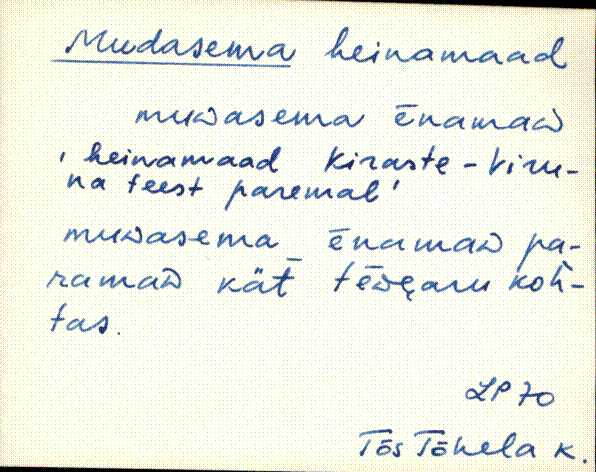 Mudasema heinamaad
muᴅasema ēnamaᴅ
' heinamaad Kiraste - Viru-
na teest paremal'
muᴅasema ēnamaᴅ pa-
ramaᴅ kät tēᴅęaru koh-
tas.
LP 70
Tõs Tõhela K.